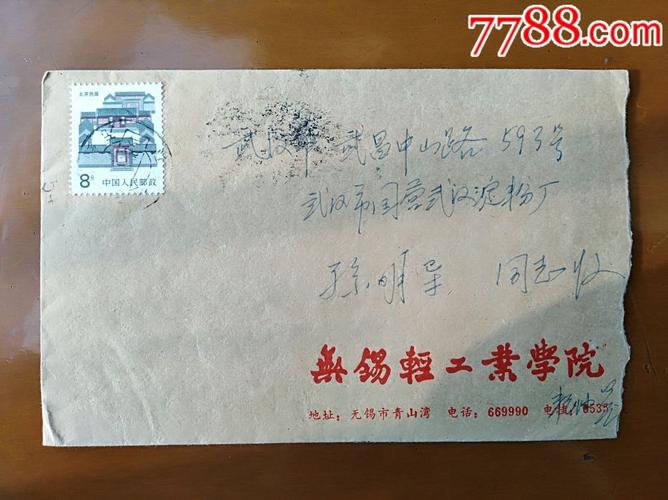 7788.com
北京民居
8分
中国人民邮政
武汉市武昌中山路593号
武汉市国营武汉淀粉厂
孙明 同志收
無錫輕工業學院
地址：无锡市青山湾 电话：669990 电挂：8535